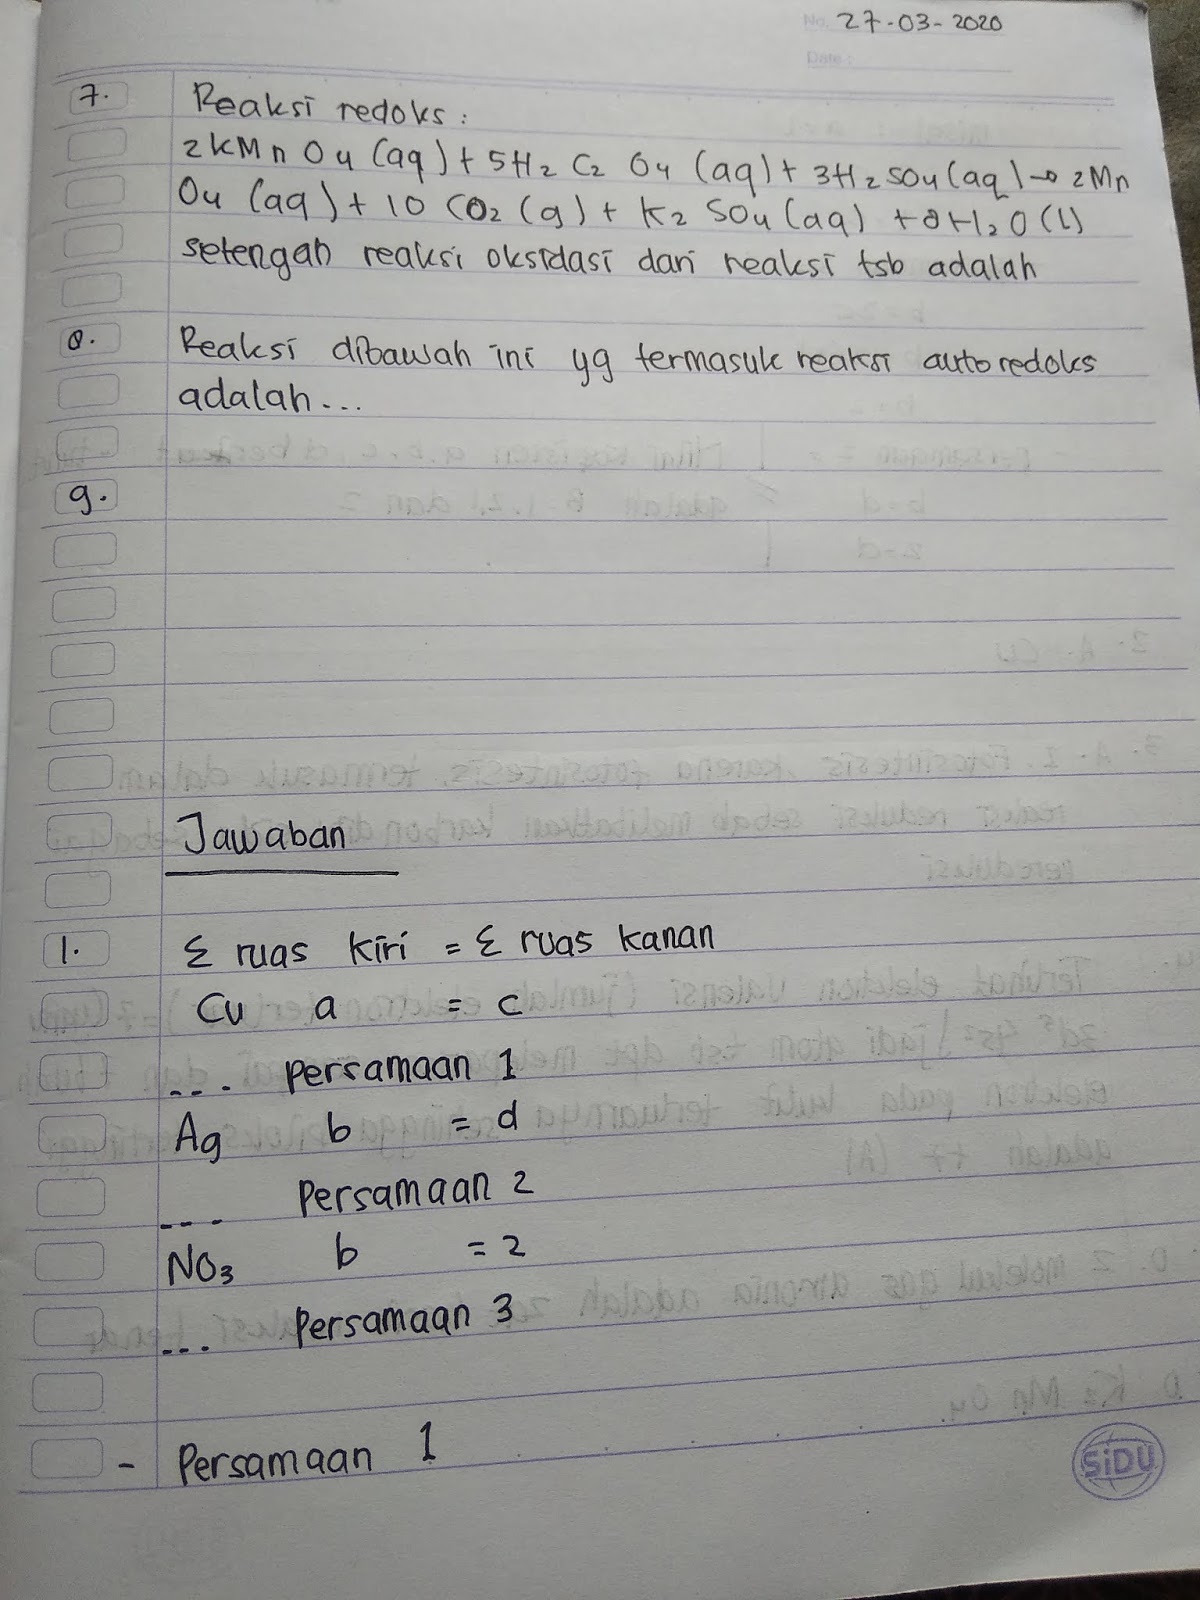 No. 27-03-2020
Date:
7. Reaksi redoks:
2KMnO4 (aq) + 5H2C2O4 (aq) + 3H2SO4 (aq) → 2Mn
O4 (aq) + 10 CO2 (g) + K2SO4 (aq) + 8H2O (l)
setengah reaksi oksidasi dari reaksi tsb adalah
8. Reaksi dibawah ini yg termasuk reaksi autoredoks
adalah...
9.
Jawaban
1. Σ ruas kiri = Σ ruas kanan
Cu a = c
... persamaan 1
Ag b = d
... Persamaan 2
NO3 b = 2
... Persamaan 3
- Persamaan 1
SiDU